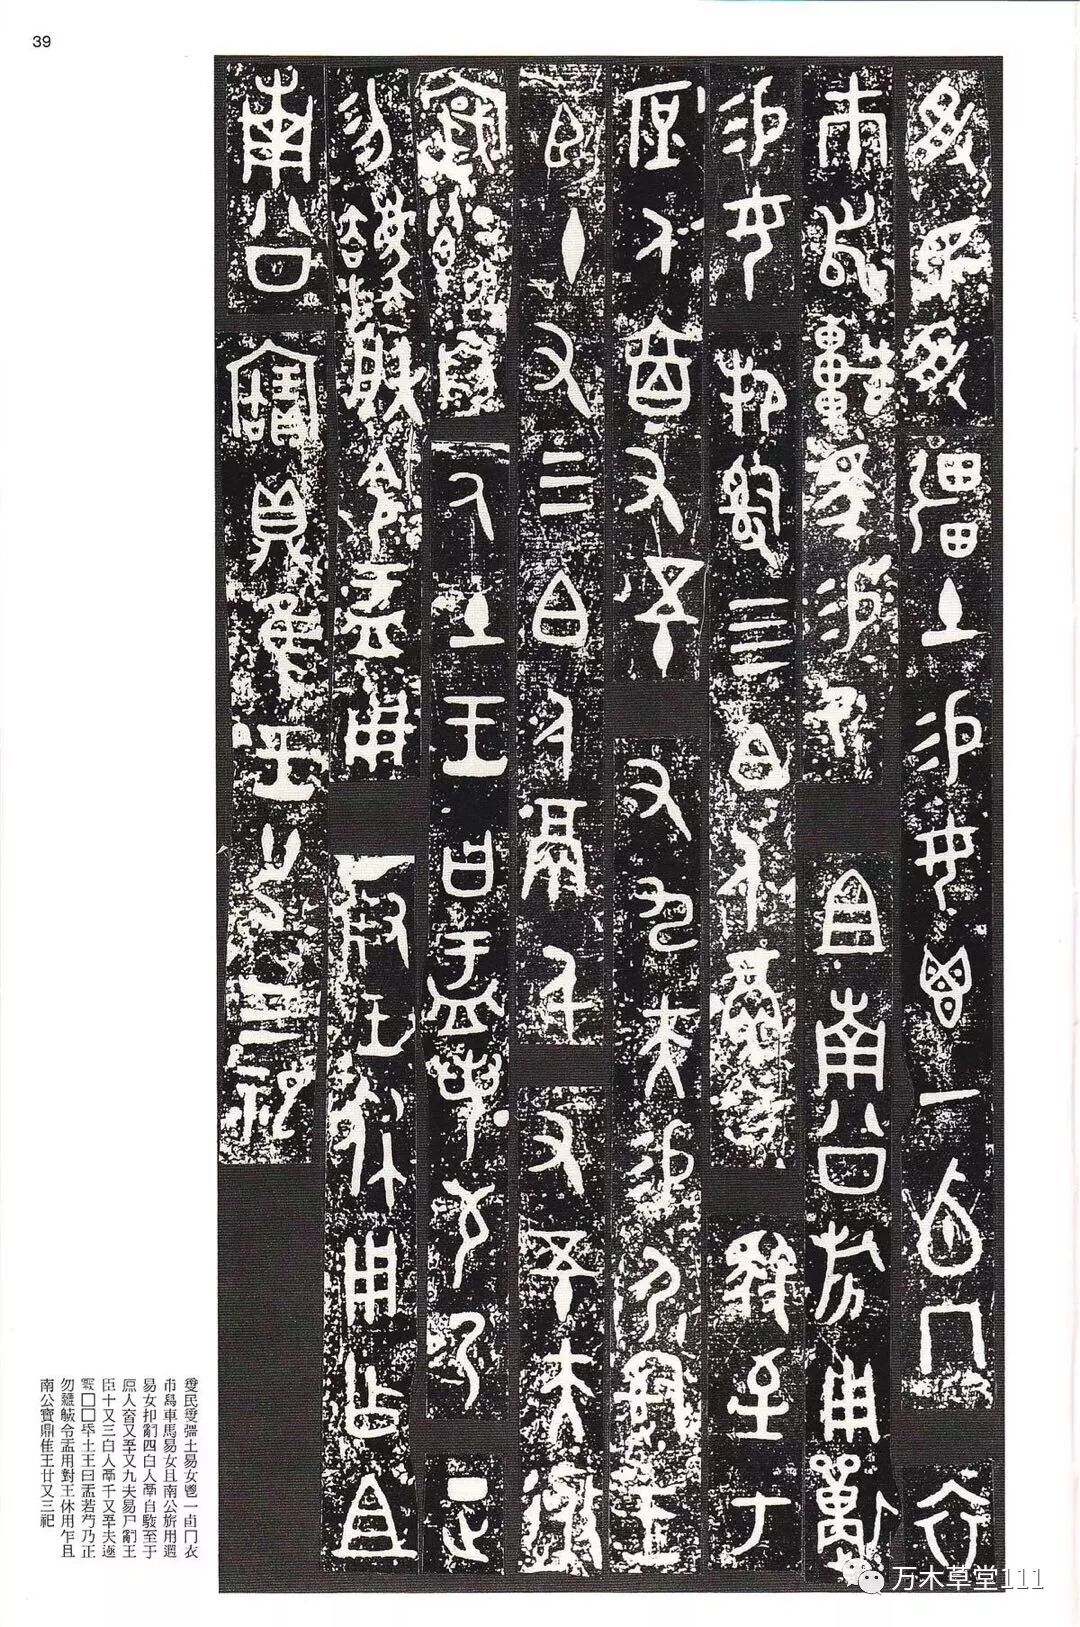 39
受民受彊土易女鬯一卣冂衣
巿舄車馬易女且南公旂用
易女邦𤔲四白人鬲自馭至于
人又五十又九夫易尸𤔲王
臣十又三白人鬲千又五十夫
□□氒土王曰盂若芍乃正
勿灋朕令盂用對王休用乍且
南公寶鼎隹王廿又三祀
万木草堂111